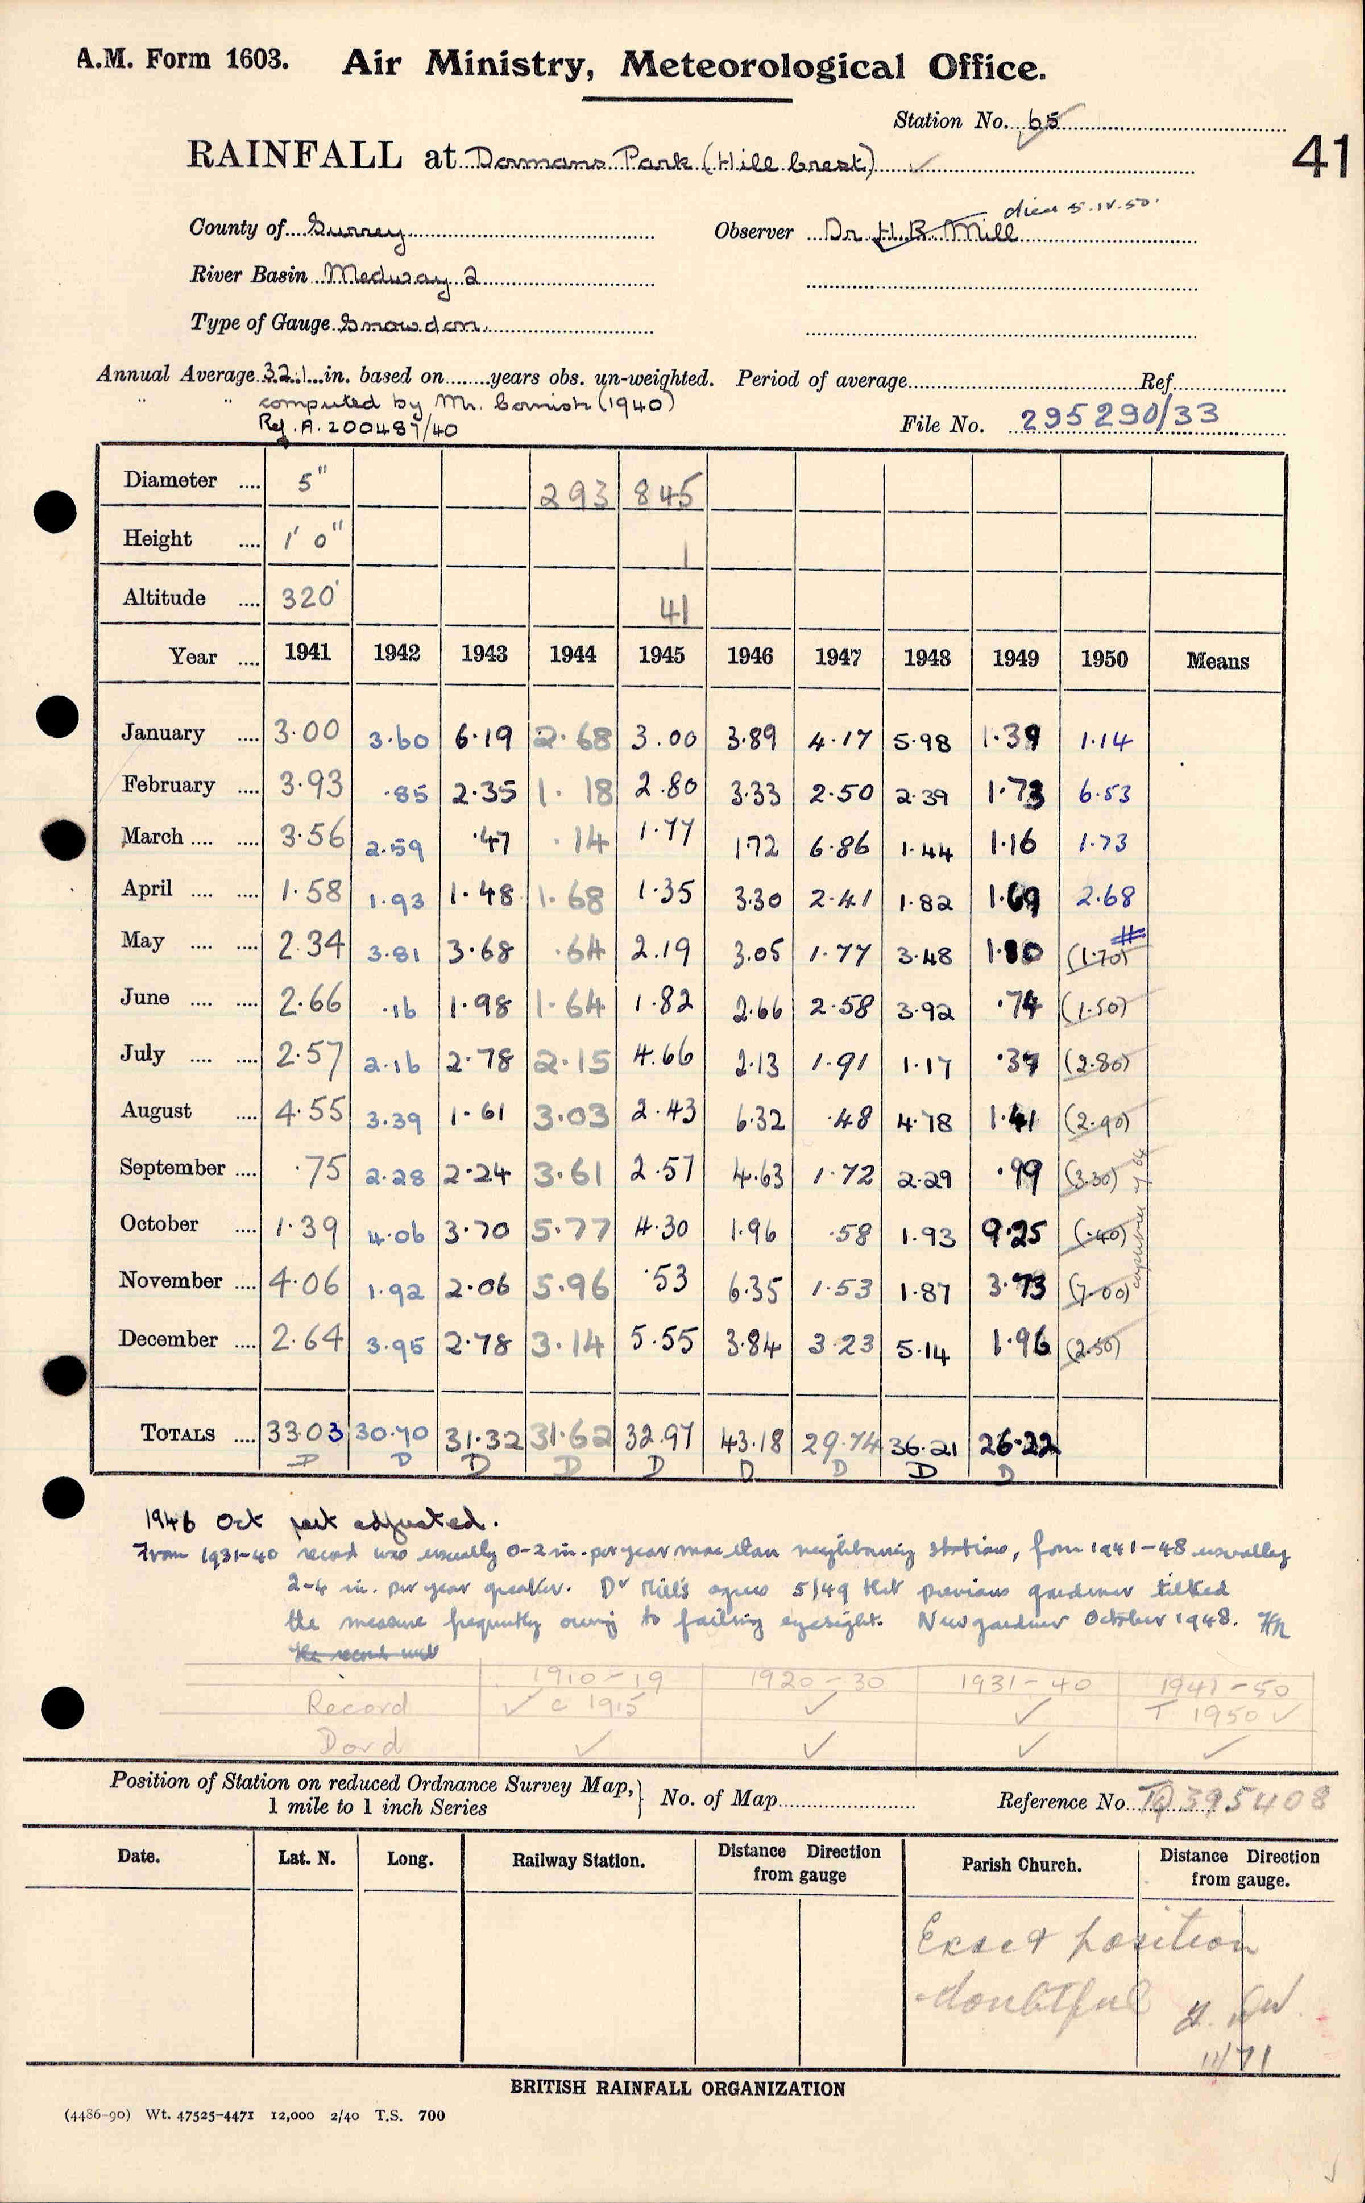 A.M. Form 1603. Air Ministry, Meteorological Office.
Station No. 65
41
RAINFALL at Dormans Park (Hill Crest) ✓
died 5.IV.50.
County of Surrey Observer Dr H.R. Mill
River Basin Medway 2
Type of Gauge Snowdon
Annual Average 32.1 in. based on ........ years obs. un-weighted. Period of average Ref.
" " computed by Mr. Cornish (1940)
Ref. A.200487/40 File No. 295290/33
Diameter .... 5" 293 845
Height .... 1' 0" 1
Altitude .... 320' 41
Year .... 1941 1942 1943 1944 1945 1946 1947 1948 1949 1950 Means
January .... 3.00 3.60 6.19 2.68 3.00 3.89 4.17 5.98 1.39 1.14
February .... 3.93 .85 2.35 1.18 2.80 3.33 2.50 2.39 1.73 6.53
March .... .... 3.56 2.59 .47 .14 1.77 1.72 6.86 1.44 1.16 1.73
April .... .... 1.58 1.93 1.48 1.68 1.35 3.30 2.41 1.82 1.69 2.68
May .... .... 2.34 3.81 3.68 .64 2.19 3.05 1.77 3.48 1.80 (1.70)
June .... .... 2.66 .16 1.98 1.64 1.82 2.66 2.58 3.92 .74 (1.50)
July .... .... 2.57 2.16 2.78 2.15 4.66 2.13 1.91 1.17 .37 (2.80)
August .... 4.55 3.39 1.61 3.03 2.43 6.32 .48 4.78 1.41 (2.90)
September .... .75 2.28 2.24 3.61 2.57 4.63 1.72 2.29 .99 (3.30)
October .... 1.39 4.06 3.70 5.77 4.30 1.96 .58 1.93 9.25 (.40)
November .... 4.06 1.92 2.06 5.96 .53 6.35 1.53 1.87 3.73 (7.00)
December .... 2.64 3.95 2.78 3.14 5.55 3.84 3.23 5.14 1.96 (2.50)
TOTALS .... 33.03 30.70 31.32 31.62 32.97 43.18 29.74 36.21 26.22
D D D D D D D D D
1946 Oct part adjusted.
From 1931-40 record was usually 0-2 in. per year more than neighbouring stations, from 1941-48 usually
2-4 in. per year greater. Dr Mill's agrees 5/49 that previous gardener tilted
the measure frequently owing to failing eyesight. New gardener October 1948.
the record was
1910-19 1920-30 1931-40 1941-50
Record ✓ c 1915 ✓ ✓ T 1950 ✓
Dord ✓ ✓ ✓ ✓
Position of Station on reduced Ordnance Survey Map,} No. of Map Reference No. TQ 395408
1 mile to 1 inch Series
Date. Lat. N. Long. Railway Station. Distance Direction from gauge Parish Church. Distance Direction from gauge.
Exact position
doubtful
11/71
BRITISH RAINFALL ORGANIZATION
(4486-90) Wt. 47525-4471 12,000 2/40 T.S. 700